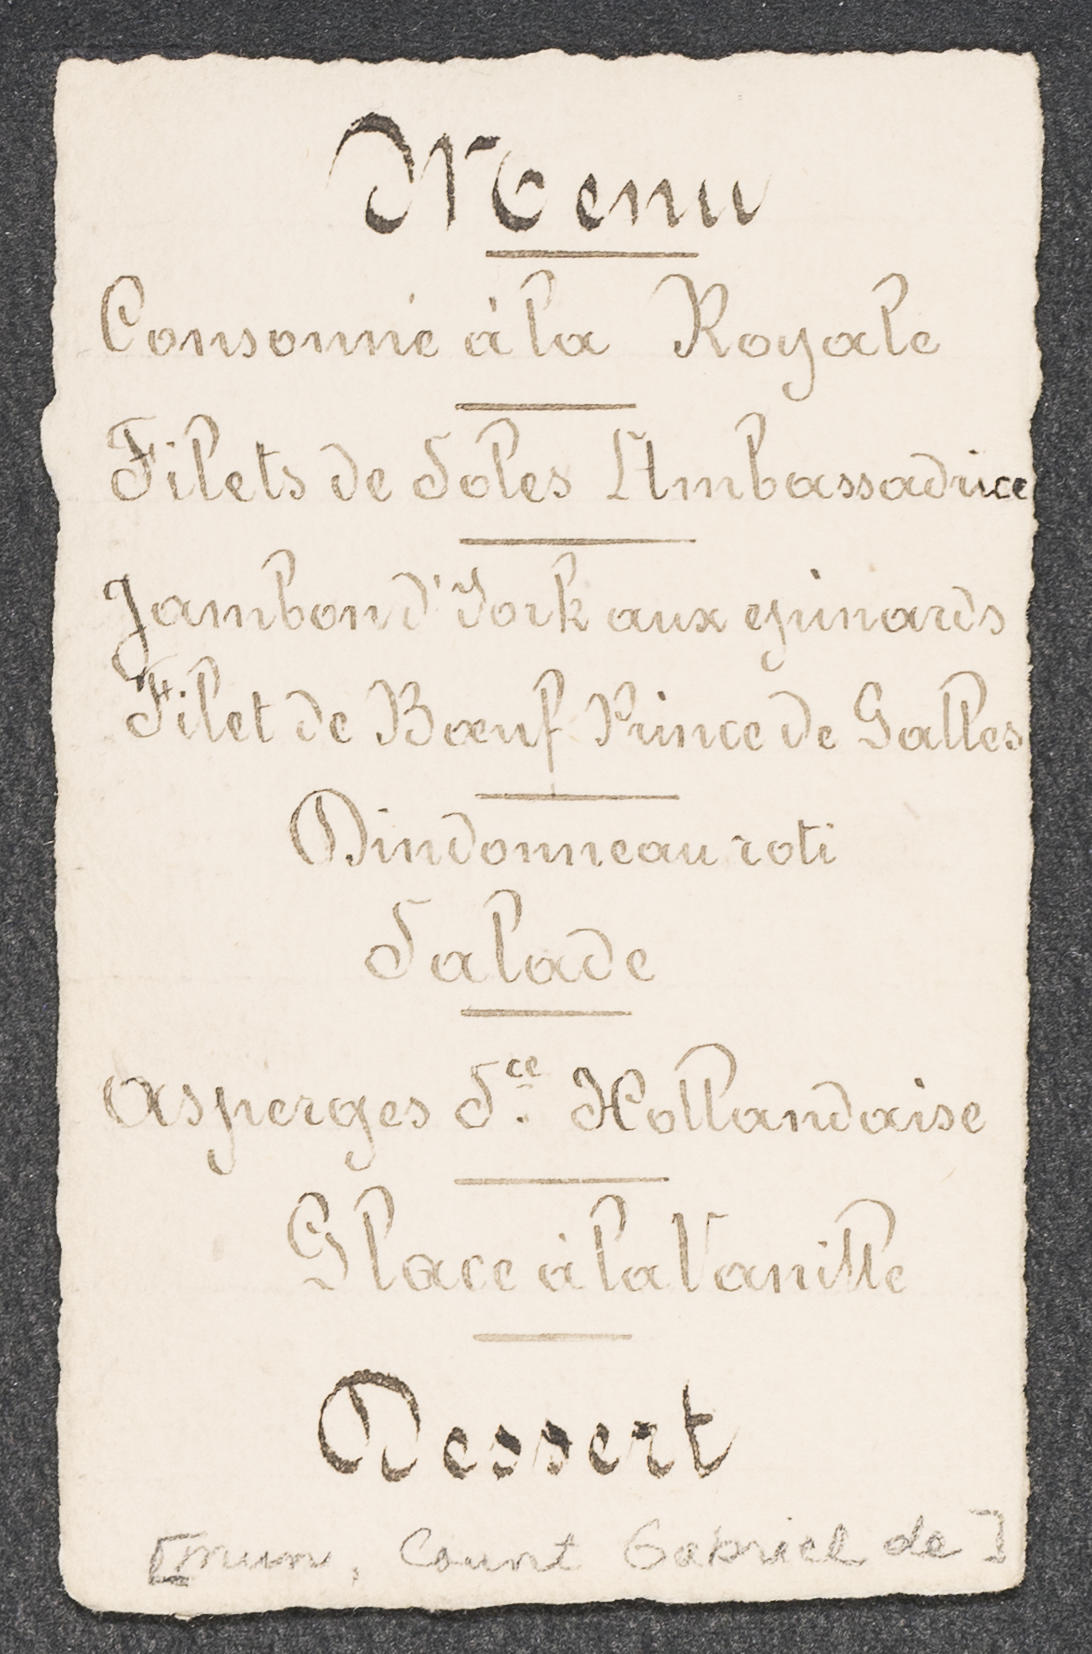 Menu
Consonné à la Royale
Filets de Soles l'Ambassadrice
Jambon d'York aux epinards
Filet de Bœuf Prince de Galles
Dindonneau roti
Salade
Asperges S.ce Hollandaise
Glace à la Vanille
Dessert
[Mun, Count Gabriel de]